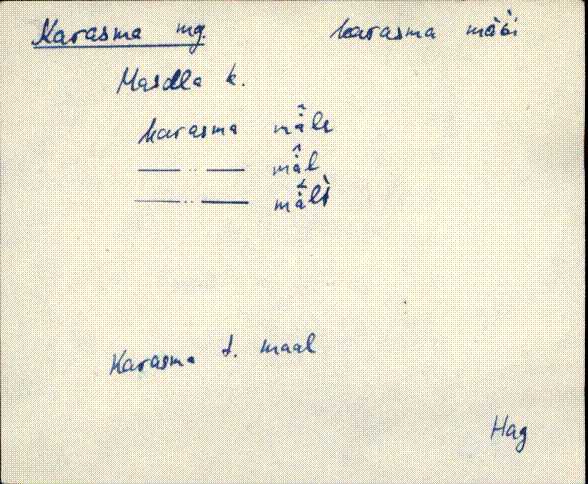 Karasma mg. karasma mä̀ǹi
Masdla k.
karasma mä̂le
—  ..  — mä̂l
—  ..  — mä̂lt̀
Karasma t. maal
Hag